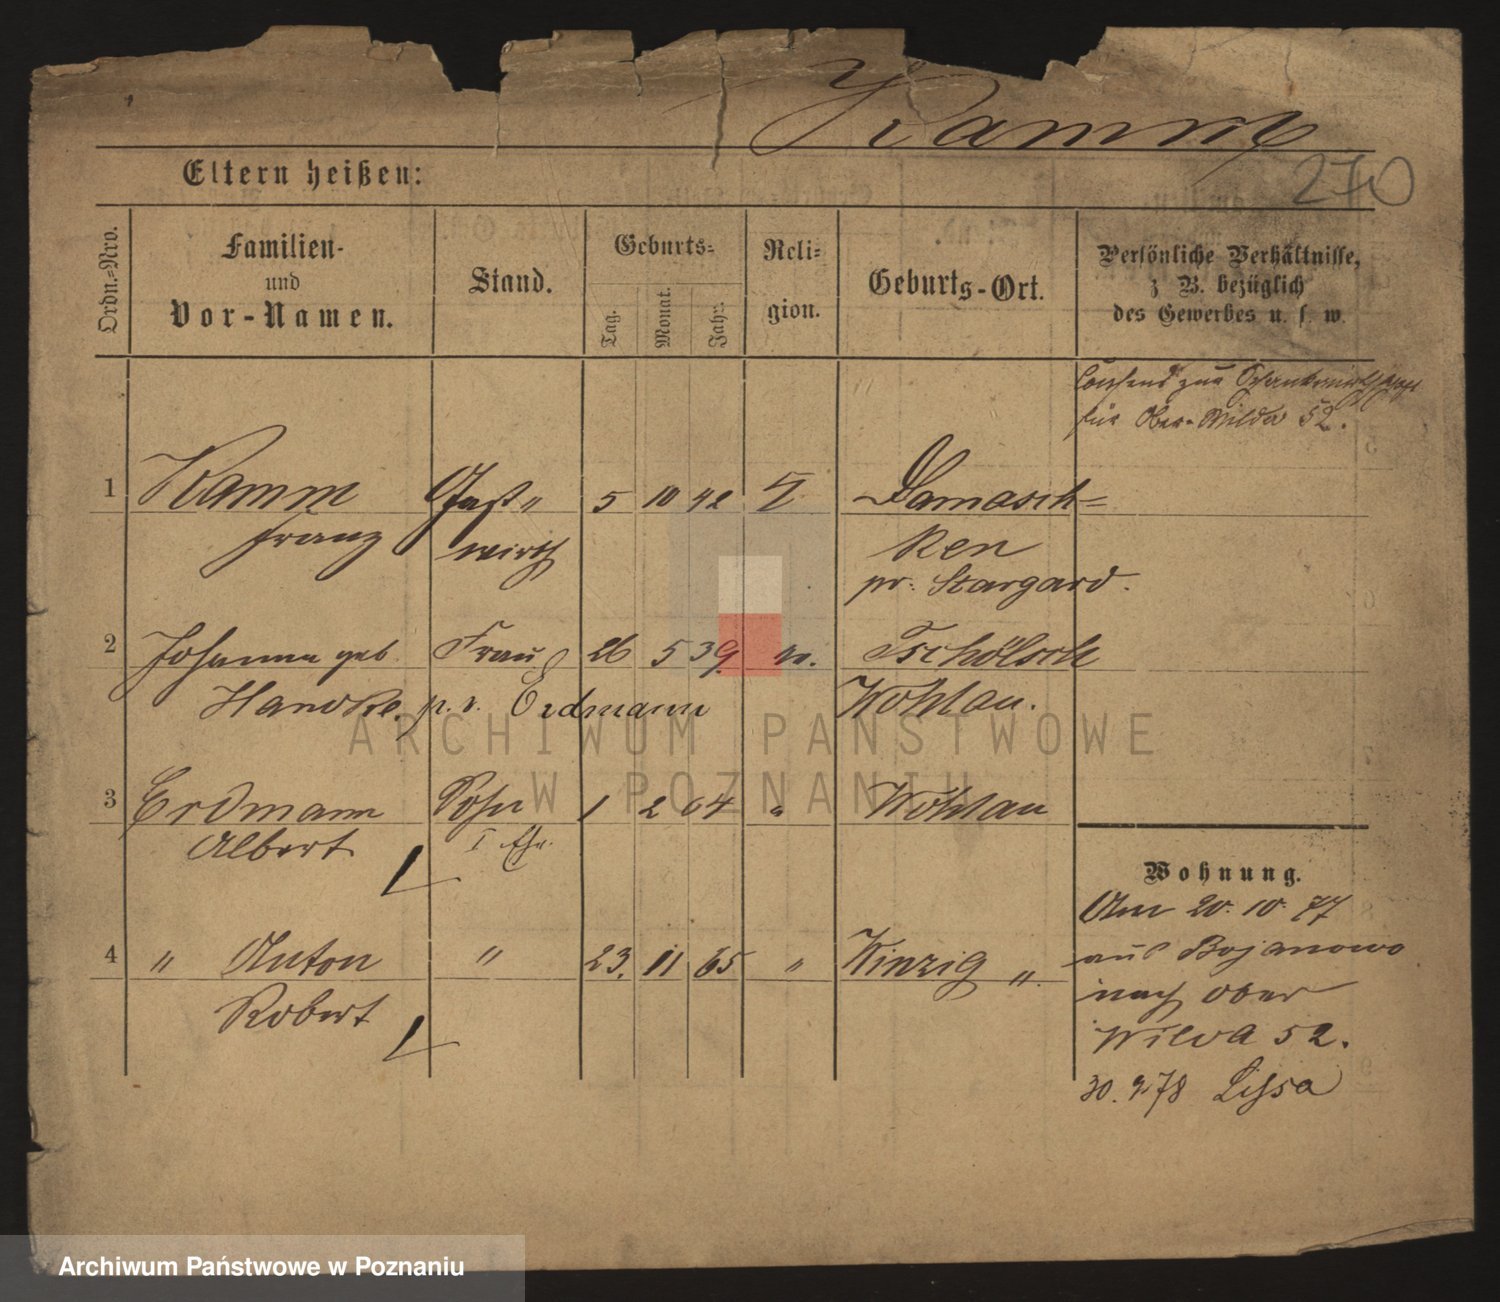 Kamm
270
Eltern heißen:
Ordn.-Nro.
Familien-
und
Vor-Namen.
Stand.
Geburts-
Tag.
Monat.
Jahr.
Reli-
gion.
Geburts-Ort.
Persönliche Verhältnisse,
z B. bezüglich
des Gewerbes u. s. w.
Consens zur
für Ober-Wilda 52.
1 Kamm Gast- 5 10 42 Damasch-
Franz wirth ken
pr. Stargard.
2 Johanna geb. Frau 26 5 39.
Hancke p. v. Erdmann Wohlau.
3 Erdmann Sohn 1 2 64 " Wohlau
Albert I Ehe.
4 " Anton " 23. 11 65 " Winzig "
Robert
Wohnung.
Am 20. 10. 77
aus Bojanowo
nach Ober
Wilda 52.
30. 9 78 Lissa
ARCHIWUM PAŃSTWOWE
W POZNANIU
Archiwum Państwowe w Poznaniu